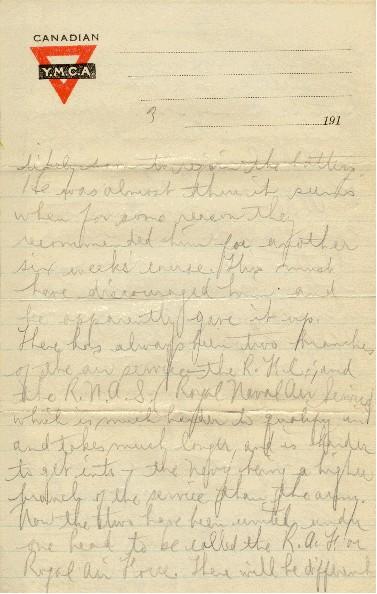 CANADIAN
Y.M.C.A.
3
191
likely soon to rejoin the battery.
He was almost thru it seems
when for some reason they
recommended him for another
six weeks' course. This must
have discouraged him and
he apparently gave it up.
There has always been two branches
of the air service - the R.F.C.; and
the R.N.A.S. Royal Naval Air Service
which is much harder to qualify in
and takes much longer, and is harder
to get into - the Navy being a higher
branch of the service than the army.
Now the two have been united under
one head to be called the R.A.F. or
Royal Air Force. There will be different